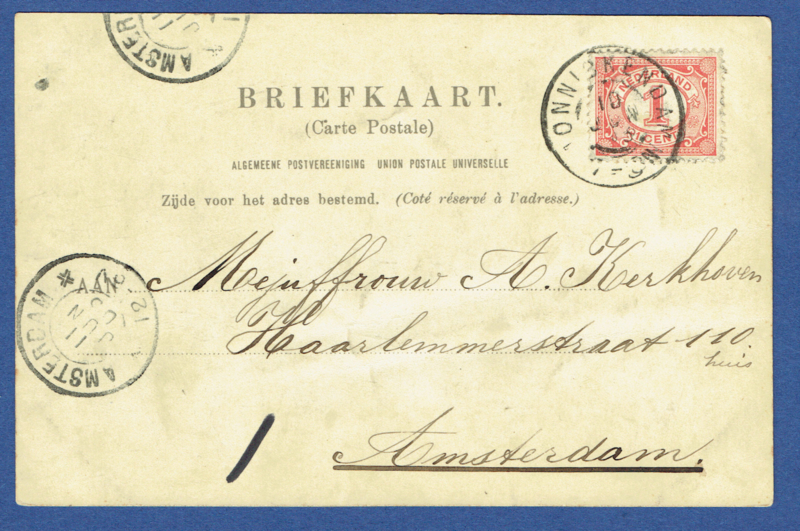 AMSTER
BRIEFKAART.
(Carte Postale)
ALGEMEENE POSTVEREENIGING UNION POSTALE UNIVERSELLE
Zijde voor het adres bestemd. (Coté réservé à l'adresse.)
NEDERLAND
1
CENT
MONNICKENDAM
7-9
AAN
AMSTERDAM
Mejuffrouw A. Kerkhoven
Haarlemmerstraat 110.
huis
Amsterdam.